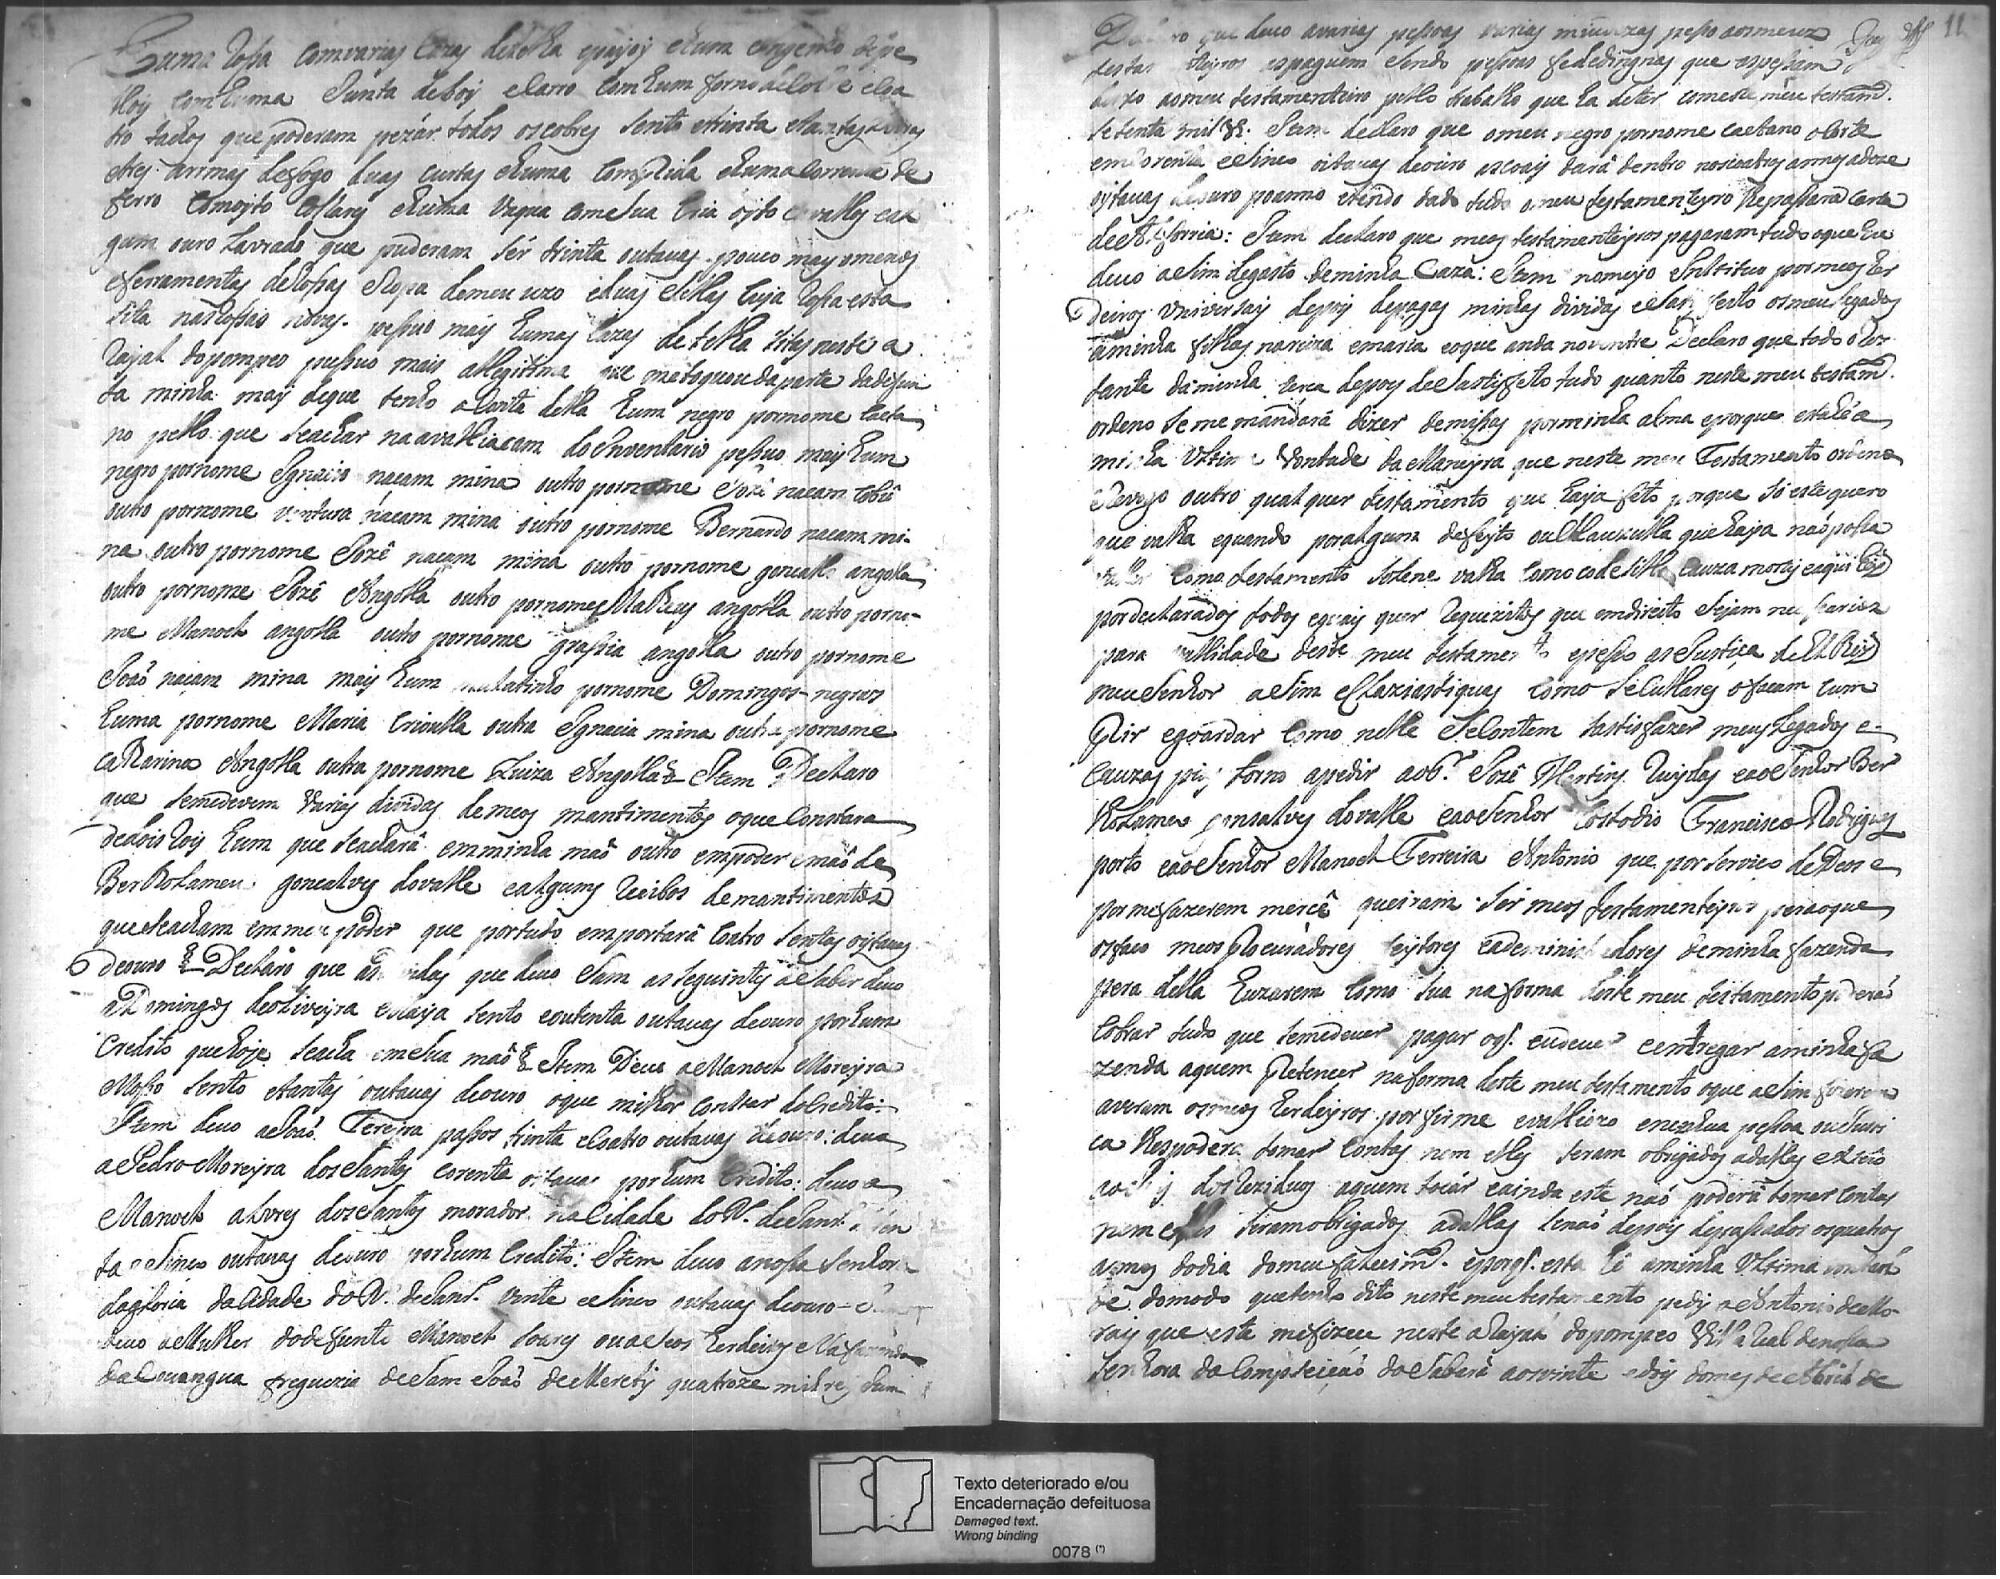 huma Rossa com varias cazas de telha
com huma Junta de boy e carro com hum forno de cobre
to tachos que poderam pezar todos os cobres sento e trinta e tantas livras
e tres armas de fogo duas curtas e huma comprida e huma corrente de
ferro com oyto collares e huma vaqua com e sua cria oyto cavallos e al
gum ouro Lavrado que puderam ser trinta outavas pouco mays omenos
e ferramentas de Rossas e Ropa de meu uzo e duas sellas cuja Rossa esta
sita nas Rossas novas pessuo mais humas cazas de telha sitas neste a
Rayal do pompeo pessuo mais a llegitima que me toquou da parte da defun
ta minha may de que tenho a conta della hum negro por nome Caeta
no pello que se achar na avalliacam do Enventario pessuo mays hum
negro por nome Ignacio nacam mina outro por nome Jozê nacam cobû
outro por nome ventura nacam mina outro por nome Bernardo nacam mi-
na outro por nome Jozê nacam mina outro por nome goncallo angolla
outro por nome Jozê Angolla outro por nome Matheus angolla outro por no-
me Manoel angolla outro por nome grassia angolla outro por nome
Joaõ nacam mina mays hum mulatinho por nome Domingos negras
huma por nome Maria crioulla outra Ignacia mina outra por nome
Catharina Angolla outra por nome Luiza Angolla Item Declaro
que se me devem varias dividas de meos mantimentos o que constara
de dois Roys hum que se achará em minha maõ outro em poder e maõ de
Bertholameu goncalves do valle e alguns recibos de mantimentos
que se acham em meu poder que por tudo emportará coatro sentas oytavas
de ouro Declaro que as dividas que devo sam as seguintes a saber devo
a Domingos de oliveyra e Maya sento e outenta outavas de ouro por hum
credito que hoje se acha em sua maõ Item Devo a Manoel Moreyra
Mosso sento e tantas outavas de ouro o que milhor constar do credito:
Item devo a Joaõ Ferreira passos trinta e coatro outavas de ouro: devo
a Pedro Moreyra dos Santos corenta oitavas por hum credito: devo a
Manoel alvres dos Santos morador na Cidade do R. de Jan.
ta e sinco outavas de ouro por hum credito: Item devo a nossa senhora
da gloria da Cidade do R. de Jan. vinte e sinco outavas de ouro
devo a Mulher do defunto Manoel soares ou a seos herdeiros
freguezia de Sam Joaõ de Merety quatroze mil reis
Declaro que devo a varias pessoas varias miudezas pesso aos meuz
testamenteyros as paguem sendo pessoas fededignas que as pessam
deixo ao meu testamenteiro pello trabalho que ha de ter com este meu testam.
setenta mil Rs. Item declaro que o meu negro por nome Caetano o corte
em corenta e sinco oitavas de ouro as coais dará dentro
oytavas de ouro por anno e tendo dado tudo o meu testamenteyro lhe passara carta
de Alforria: Item declaro que meos testamenteyros pagaram tudo o que Eu
devo a sim de gasto de minha Caza: Item nomeyo e Instituo por meos her
deiros Universais depois de pagas minhas dividas e satisfeito os meus legados
a minha filhas narciza e maria e o que anda no ventre Declaro que todo o Res-
tante da minha terca depoys de Satisfeito tudo quanto neste meu testam.
ordeno se me mandará dizer de missas por minha alma e porque esta he a
minha Ultima Vontade da Maneyra que neste meu Testamento ordeno
e Revogo outro qualquer testamento que haja feito porque só este quero
que valha e quando por algum defeyto ou Clauzulla que haja naõ possa
valer como testamento solene valha como codesillo
por declarados todos e quais quer Requizitos que em direito sejam
para vallidade deste meu testamento e pesso as Justiça de El Rey
meu Senhor a sim Eclaziastiquas como seculares o facam cum
prir e goardar como nelle se contem sastisfazer meus legados e
cauzas pias torno a pedir ao Jozê Martins e ao Senhor Ber
tholameu gonsalves do valle e ao Senhor Costodio Francisco Rodrigues
porto e ao Senhor Manoel Ferreira Antonio que por servico de Deos e
por me fazerem mercê queiram ser meos testamenteyros pera o que
os faco meos Procuradores feytores e adeministradores de minha fazenda
pera della huzarem como sua na forma deste meu testamento poderá
cobrar tudo que se me dever pagar o q. eu dever e entregar a minha fa
zenda a quem Pertencer na forma deste meu testamento o que a sim fizerem
averam os meos herdeyros por firme e vallioso e nenhua pessoa ou Justi
ca lhes podera tomar contas nem elles seram obrigados a dallas
dos Reziduos a quem tocár e ainda este naõ poderá tomar contas
nem elles seram obrigados a dallas senaõ depois de passados os quatros
annos do dia do meu falecim. e porq. esta hê a minha Ultima vontade
de do modo que tenho dito neste meu testamento pedy a Antonio de Mo-
rais que este me fizece neste aRayal do pompeo Villa Real de nossa
senhora da Compseiçaõ do Sabará aos vinte e dois do mes de Abril de
11
Texto deteriorado e/ou
Encadernação defeituosa
Damaged text.
Wrong binding
0078 (*)